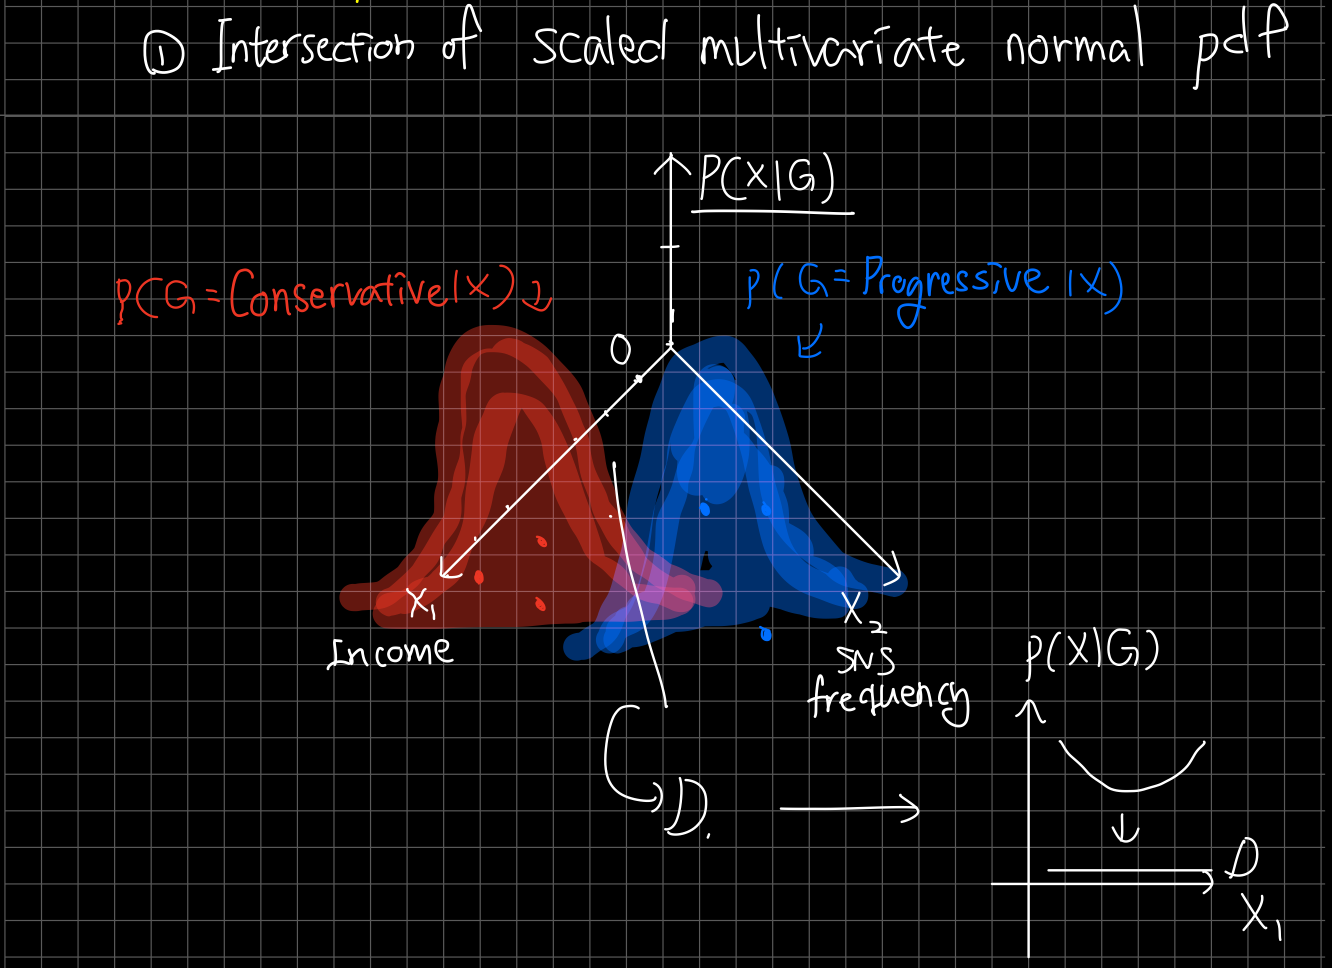 ① Intersection of scaled multivariate normal pdf
P(X|G)
P(G=Conservative|X)
P(G=Progressive|X)
O
X₁
Income
X₂
SNS
frequency
P(X|G)
D
D
X₁